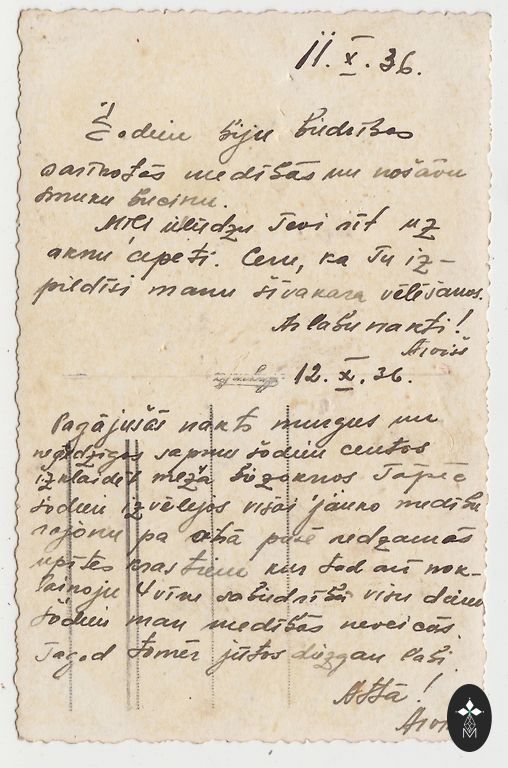 11. X. 36.
Šodien biju biedrības
sarīkotās medībās un nošāvu
smuku bucinu.
Mīļi lūdzu Tevi rīt uz
aknu apēti. Ceru, ka Tu iz-
pildīsi manu šīvakara vēlēšanos.
Ar labu nakti!
12. X. 36.
Pagājušās nakts murgus un
sapņu šodien centos
izklaidēt mežā Tāpēc
šodien izvēlējos visai jauko medību
rajonu pa abā pusē redzamās
upītes krastiem kur tad arī nok-
laiņoju 4 vīru sabiedrībā visu dienu
Šodien man medībās neveicās.
Tagad tomēr jūtos diezgan labi.
Attā!